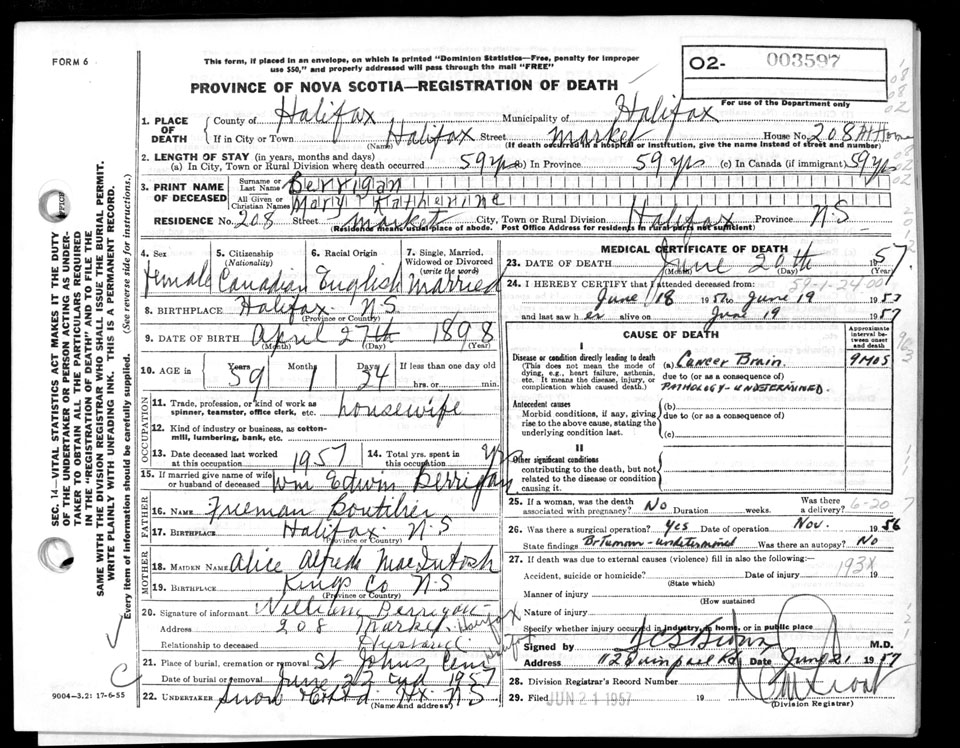 FORM 6
This form, if placed in an envelope, on which is printed "Dominion Statistics—Free, penalty for improper
use $50," and properly addressed will pass through the mail "FREE"
02- 003597
For use of the Department only
PROVINCE OF NOVA SCOTIA—REGISTRATION OF DEATH
1. PLACE OF DEATH County of Halifax Municipality of Halifax
If in City or Town Halifax Street Market House No. 208 At Home
(Name) (If death occurred in a hospital or institution, give the name instead of street and number)
2. LENGTH OF STAY (in years, months and days)
(a) In City, Town or Rural Division where death occurred 59 yrs (b) In Province 59 yrs (c) In Canada (if immigrant) 59 yrs
3. PRINT NAME OF DECEASED Surname or Last Name Berrigan
All Given or Christian Names Mary Katherine
RESIDENCE No. 208 Street Market City, Town or Rural Division Halifax Province N.S
(Residence means usual place of abode. Post Office Address for residents in rural parts not sufficient)
4. Sex 5. Citizenship (Nationality) 6. Racial Origin 7. Single, Married, Widowed or Divorced (write the word)
Female Canadian English Married
8. BIRTHPLACE Halifax N.S
(Province or Country)
9. DATE OF BIRTH April 27th 1898
(Month) (Day) (Year)
10. AGE in Years 59 Months 1 Days 24 If less than one day old
hrs. or min.
OCCUPATION
11. Trade, profession, or kind of work as
spinner, teamster, office clerk, etc. housewife
12. Kind of industry or business, as cotton-
mill, lumbering, bank, etc.
13. Date deceased last worked at this occupation 1957 14. Total yrs. spent in this occupation
15. If married give name of wife
or husband of deceased Wm Edwin Berrigan
FATHER
16. NAME Freeman Boutilier
17. BIRTHPLACE Halifax N.S
(Province or Country)
MOTHER
18. MAIDEN NAME Alice Alfreda MacIntosh
19. BIRTHPLACE Kings Co N.S
(Province or Country)
20. Signature of informant William Berrigan
Address 208 Market Halifax
Relationship to deceased Husband
21. Place of burial, cremation or removal St Johns Cem Halifax
Date of burial or removal June 22nd 1957
22. UNDERTAKER Snow Hx N.S
(Name and address)
MEDICAL CERTIFICATE OF DEATH
23. DATE OF DEATH June 20th 1957
(Month) (Day) (Year)
24. I HEREBY CERTIFY that I attended deceased from 59-1-24 00
June 18 1957 to June 19 1957
and last saw her alive on June 19 1957
CAUSE OF DEATH
Approximate interval between onset and death
I
Disease or condition directly leading to death
(This does not mean the mode of dying, e.g., heart failure, asthenia, etc. It means the disease, injury, or complication which caused death.)
(a) Cancer Brain 9 MOS
due to (or as a consequence of)
PATHOLOGY - UNDETERMINED.
Antecedent causes
Morbid conditions, if any, giving rise to the above cause, stating the underlying condition last.
(b)
due to (or as a consequence of)
(c)
II
Other significant conditions
contributing to the death, but not related to the disease or condition causing it.
25. If a woman, was the death associated with pregnancy? No Duration weeks. Was there a delivery? 6-20 7
26. Was there a surgical operation? Yes Date of operation Nov. 1956
State findings Br Tumour - undetermined Was there an autopsy? No
27. If death was due to external causes (violence) fill in also the following:—
Accident, suicide or homicide? Date of injury 193X 19
(State which)
Manner of injury
(How sustained
Nature of injury
Specify whether injury occurred in industry, in home, or in public place
Signed by M.D.
Address Date June 21 1957
28. Division Registrar's Record Number
29. Filed JUN 21 1957 19
(Division Registrar)
SEC. 14—VITAL STATISTICS ACT MAKES IT THE DUTY
OF THE UNDERTAKER OR PERSON ACTING AS UNDER-
TAKER TO OBTAIN ALL THE PARTICULARS REQUIRED
IN THE "REGISTRATION OF DEATH" AND TO FILE THE
SAME WITH THE DIVISION REGISTRAR WHO SHALL ISSUE THE BURIAL PERMIT.
WRITE PLAINLY WITH UNFADING INK. THIS IS A PERMANENT RECORD.
Every item of information should be carefully supplied. (See reverse side for instructions.)
9004-3.2: 17-6-55